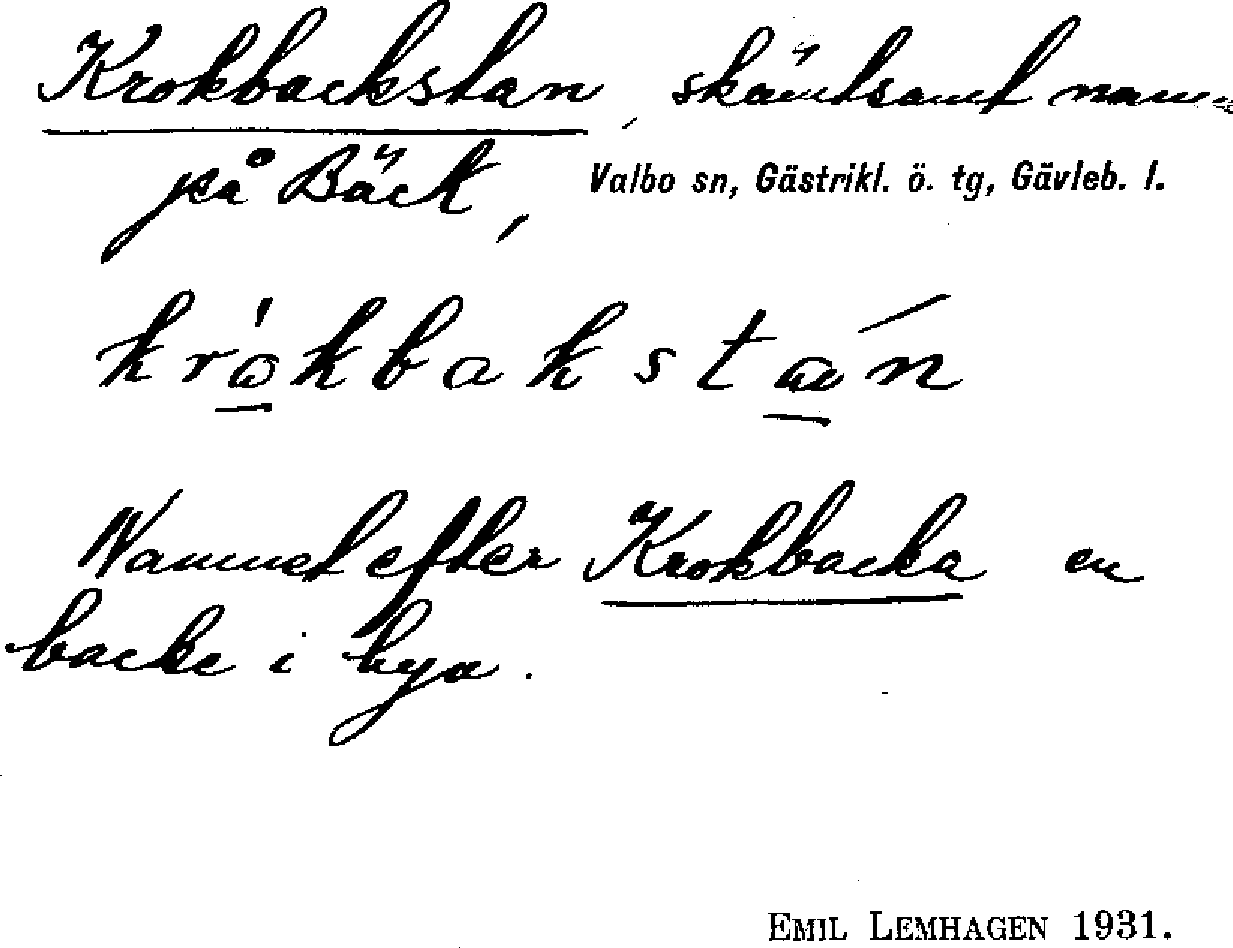 Krokbackstan, skämtsamt namn
på Bäck, Valbo sn, Gästrikl. ö. tg, Gävleb. l.
kròkbakstán
Namnet efter Krokbacka en
backe i bya.
EMIL LEMHAGEN 1931.